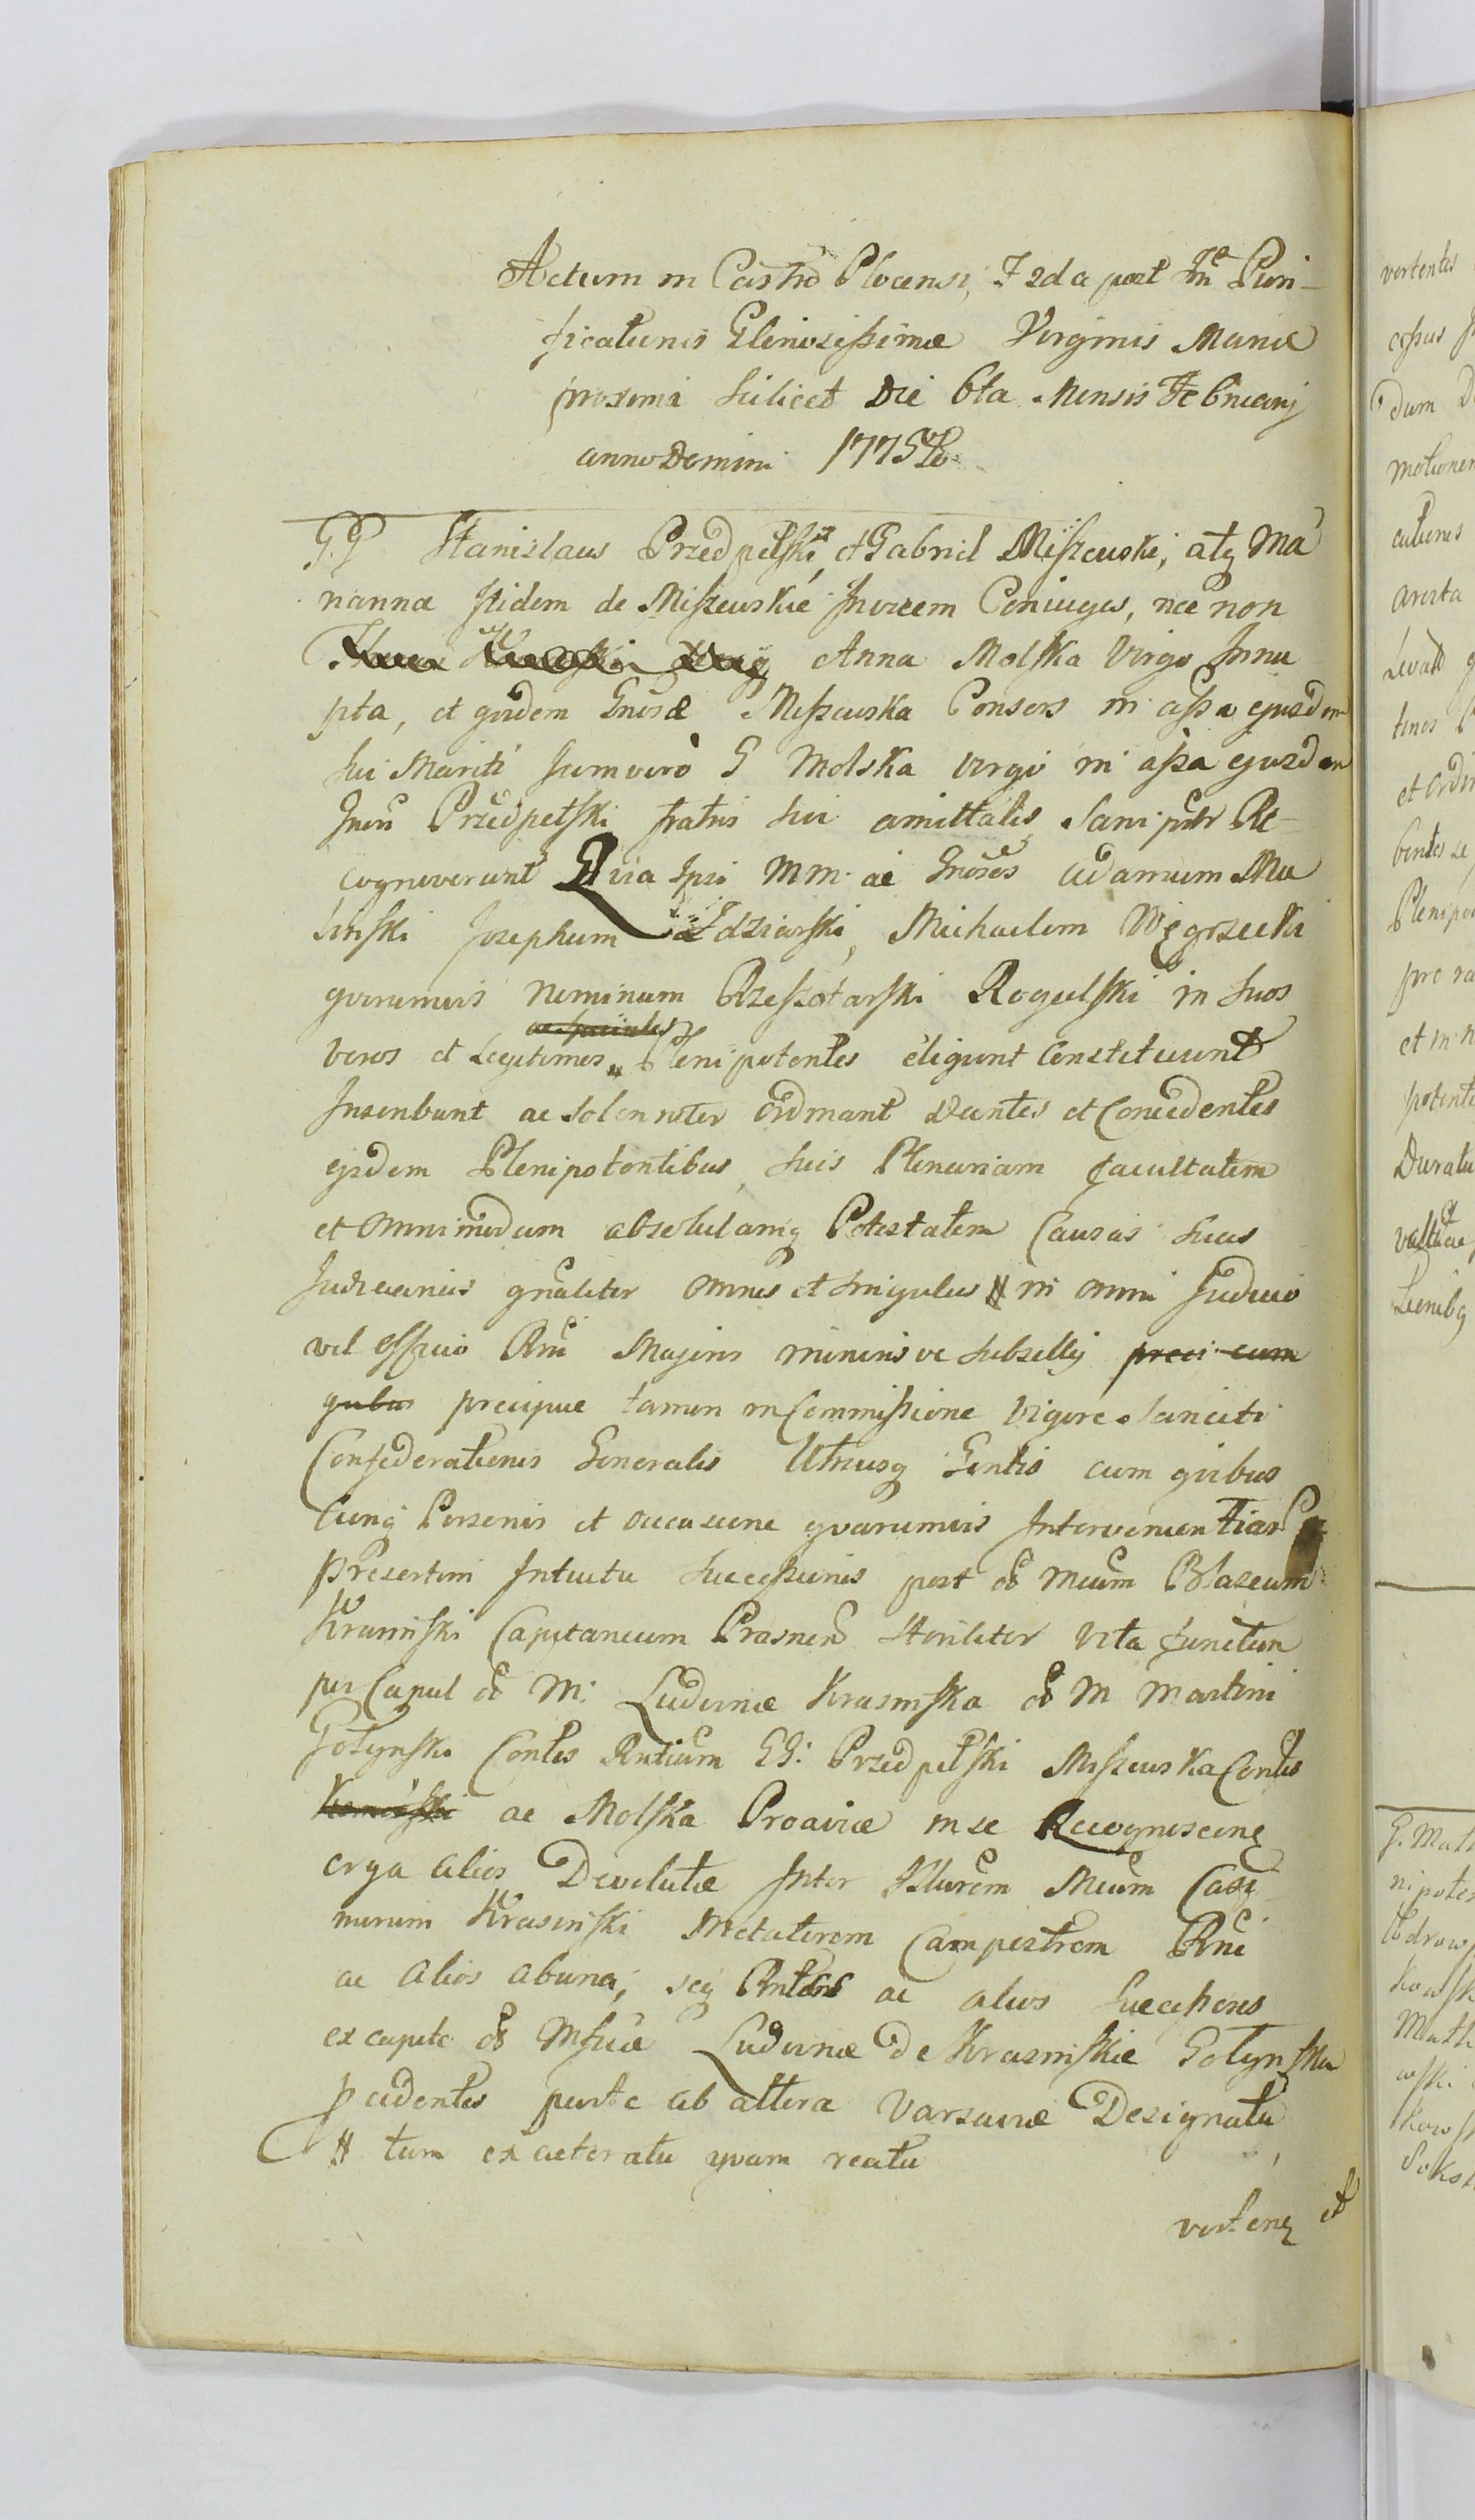 Actum in Castro Plocensi, F 2da post Ftm Puri-
ficationis Gloriosissimæ Virginis Mariæ
proxima scilicet Die 6ta Mensis Februarij
anno Domini 1775to
G.G Stanislaus Przedpełski, et Gabriel Miszewski, atq Ma
rianna itidem de Miszewskie Invicem Coniuges, nec non
Anna Molska Virgo Innu
pta, et quidem Gnosæ Miszewska Consors in assa ejusdem
sui Mariti Jumverò G Molska virgo in assa ejusdem
Gnsi Przedpełski fratris sui amittalis Sani pntr Re-
cognoverunt Quia Ipsi MM. ac Gnosos Adamum Mu
Josephum Zdziarski, Michaelem Węgrzecki
quorumvis Nominum Rzeszotarski Rogulski in suos
veros et Legitimos ac speciales Plenipotentes eligunt Constituunt
Inscribunt ac Solenniter Ordinant Dantes et Concedentes
ejsdem Plenipotentibus suis Plenariam facultatem
et Omnimodam absolutamq Potestatem Causas suas
Judiciarias gnaliter omnes et singulas # in omni Judicio
vel officio Rni Majoris minoris ve subsellij preci cum
qubus precipue tamen in Commissione vigore Sanciti
Confederationis Generalis Utriusq Gentis cum quibus
Cunq Personis et occasione quarumvis Intervenientiar
Presertim Intuitu Successionis post o8 Mcum Blazeum
Krasinski Capitaneum Prasnen Steriliter vita functum
per Caput o8 M: Ludovicæ Krasinska o8 M Martini
Gołynski Contis Rntium GG: Przedpełski Miszewska Contis
ac Molska Proaviæ in se Recognoscenq
erga alios Devolutæ Inter Illurem Mcum Casi
mirum Krasinski Metatorem Campestrem Rni
ac Alios abuna, seq Rntes ac alios Successores
ex capite o8 Mficæ Ludovicæ de Krasinskie Gołynska
pcedentes parte ab altera Varsaviæ Designata
# tum ex actoratu quam reatu
vertenq et